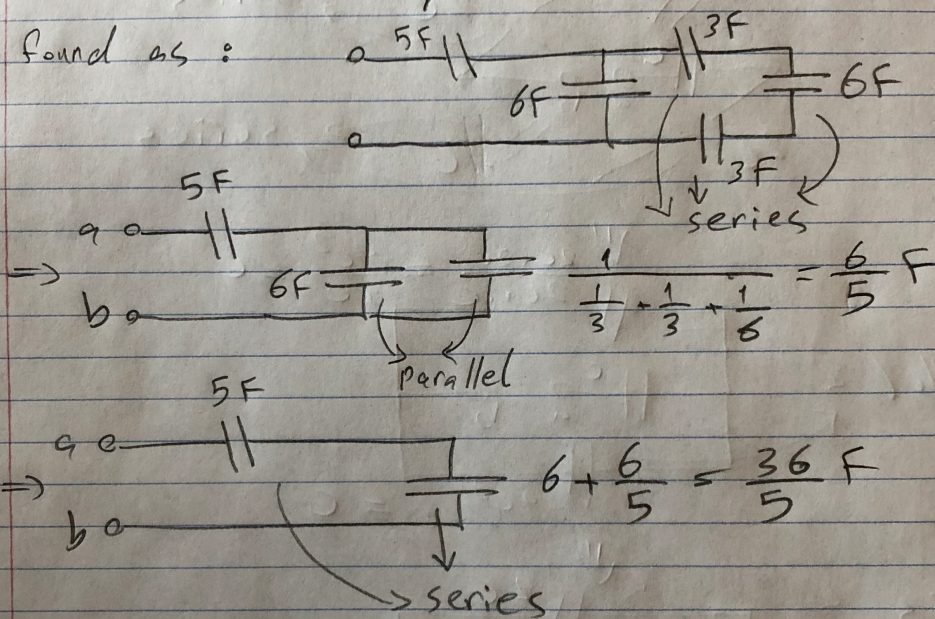 found as :
5F
3F
6F
6F
3F
series
5F
a
⇒
6F
b
1 / (1/3 + 1/3 + 1/6) = 6/5 F
parallel
5F
a
⇒
6 + 6/5 = 36/5 F
b
series